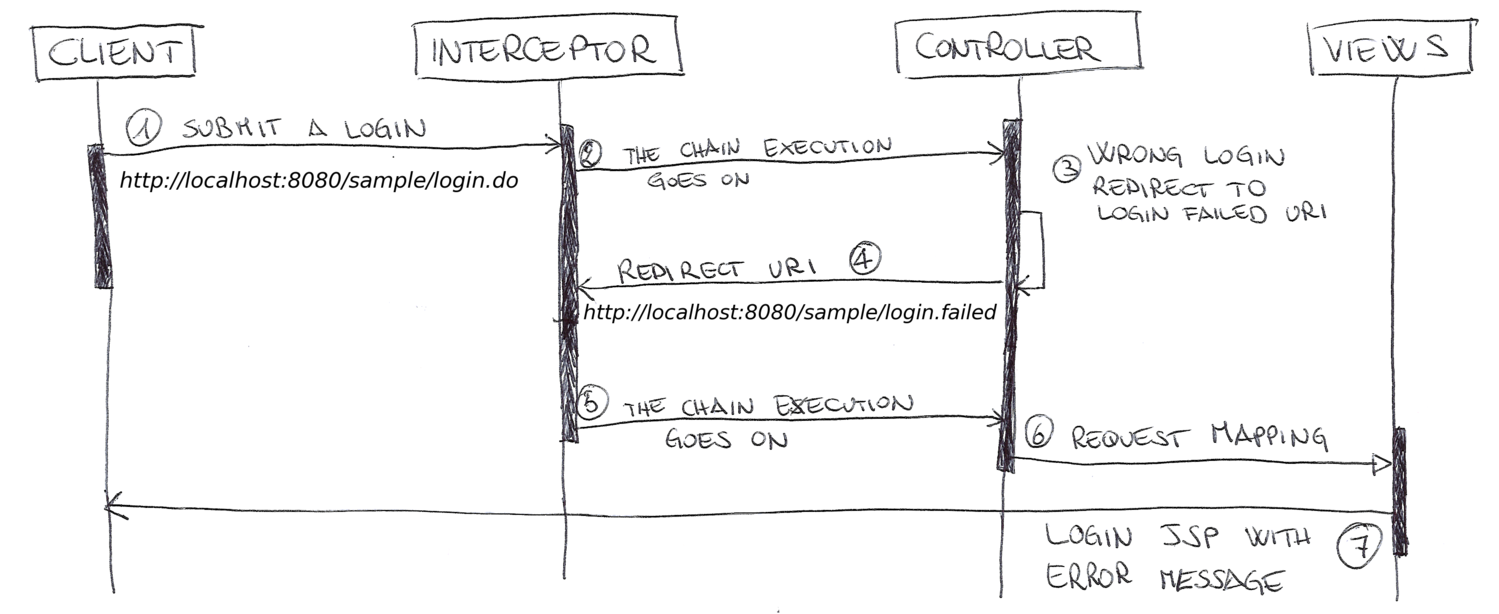 CLIENT
INTERCEPTOR
CONTROLLER
VIEWS
1 SUBMIT A LOGIN
http://localhost:8080/sample/login.do
2 THE CHAIN EXECUTION
GOES ON
3 WRONG LOGIN
REDIRECT TO
LOGIN FAILED URI
REDIRECT URI 4
http://localhost:8080/sample/login.failed
5 THE CHAIN EXECUTION
GOES ON
6 REQUEST MAPPING
LOGIN JSP WITH 7
ERROR MESSAGE